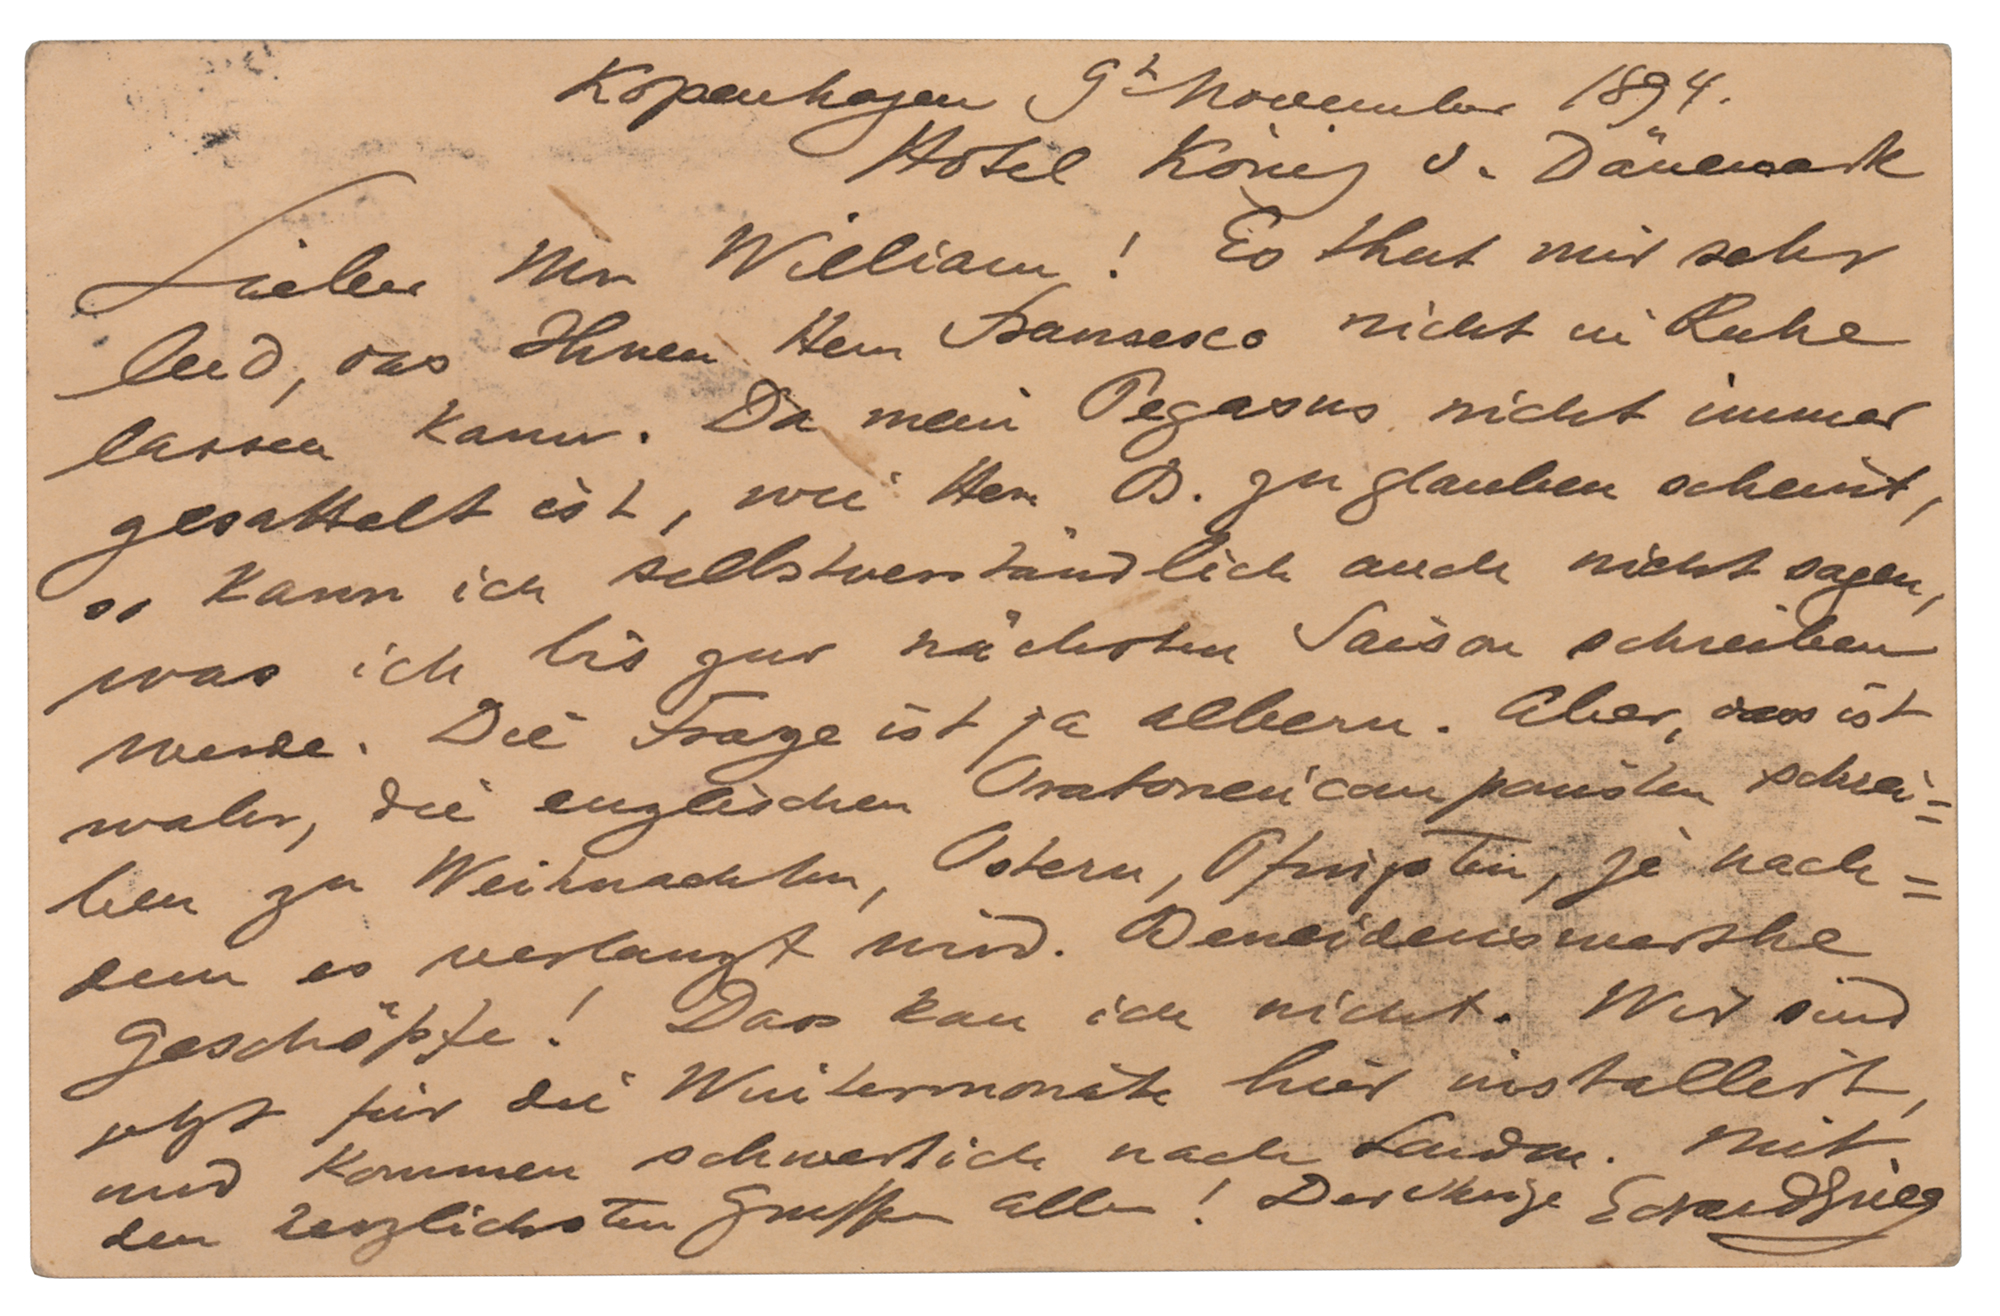 Kopenhagen 9t November 1894.
Hotel König v. Dänemark
Lieber Mr William! Es thut mir sehr
leid, das Ihnen Herr Fransesco nicht in Ruhe
lassen kann. Da mein Pegasus nicht immer
gesattelt ist, wie Herr B. zu glauben scheint,
so kann ich selbstverständlich auch nicht sagen,
was ich bis zur nächsten Saison schreiben
werde. Die Frage ist ja albern. Aber, das ist
wahr, die englischen Oratoriencomponisten schrei=
ben zu Weihnachten, Ostern, Pfingsten, je nach=
dem es verlangt wird. Beneidenswerthe
Geschöpfe! Das kan ich nicht. Wir sind
jetzt für die Wintermonate hier installirt,
und kommen schwerlich nach London. Mit
den herzlichsten Grüssen allen! Der Ihrige Edvard Grieg